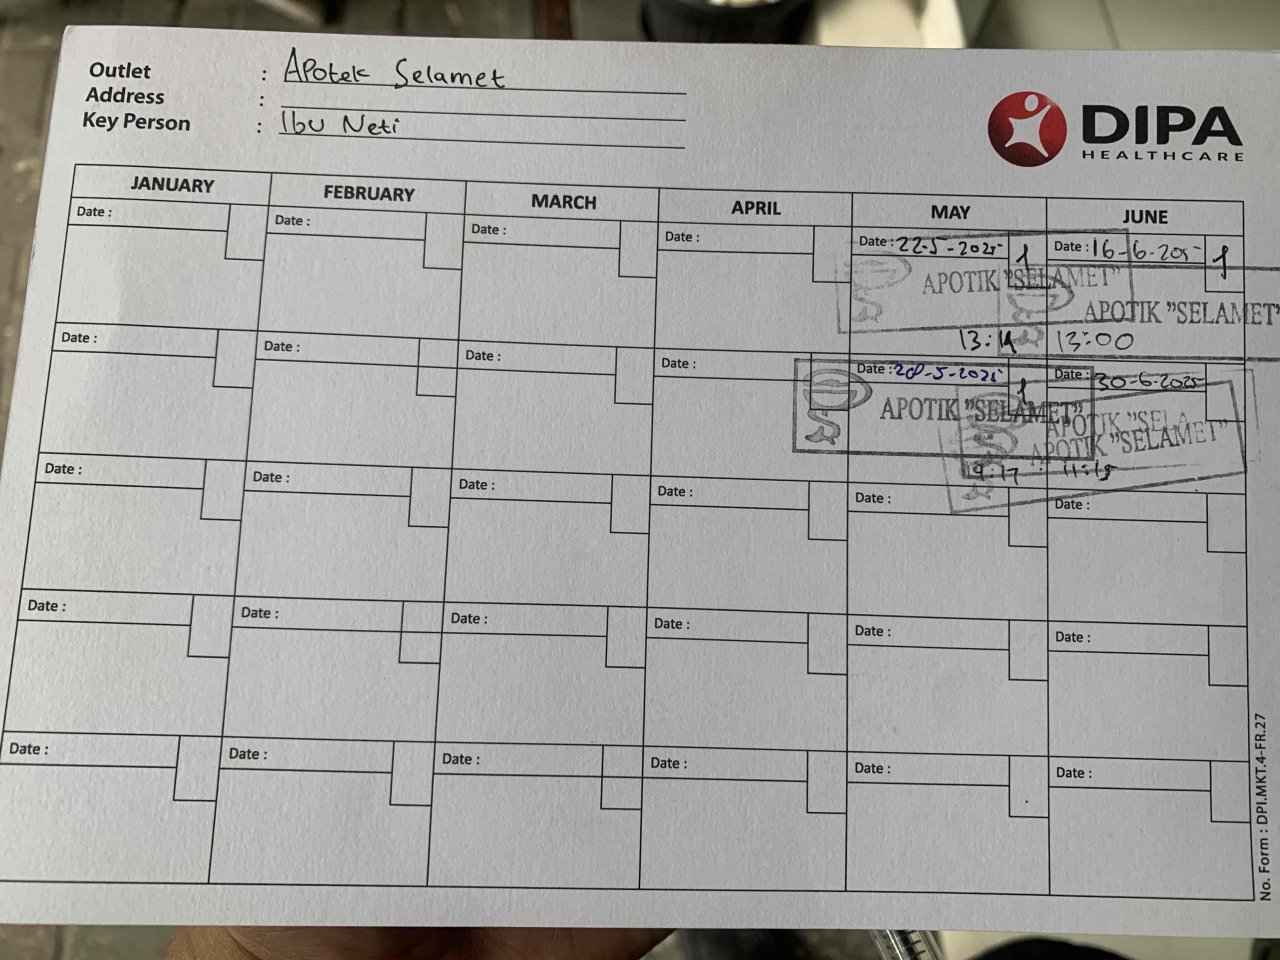 Outlet : Apotek Selamet
Address :
Key Person : Ibu Neti
DIPA
HEALTHCARE
JANUARY FEBRUARY MARCH APRIL MAY JUNE
Date : Date : Date : Date : Date : 22-5-2025 1 Date : 16-6-205 1
APOTIK "SELAMET" APOTIK "SELAMET"
13:14 13:00
Date : Date : Date : Date : Date : 28-5-2025 1 Date : 30-6-2025
APOTIK "SELAMET" APOTIK "SELA
APOTIK "SELAMET"
19:17 11:15
Date : Date : Date : Date : Date : Date :
Date : Date : Date : Date : Date : Date :
Date : Date : Date : Date : Date : Date :
No. Form : DPI.MKT.4-FR.27